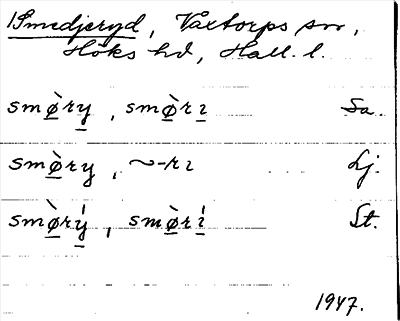 1Smedjeryd, Våxtorps sn,
Höks hd, Hall. l.
smø̀ry, smø̀rı Sa.
smø̀ry, ~-rı Lj.
smø̀rý, smø̀rí St.
1947.